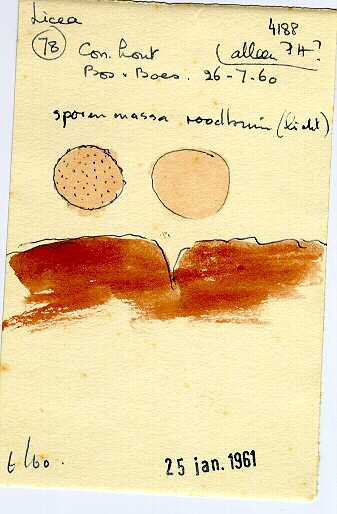 Licea
4188
78 Con. hout (alleen ?H?
Bos v Boes. 26-7-60
sporenmassa roodbruin (licht)
t/60.
25 jan. 1961